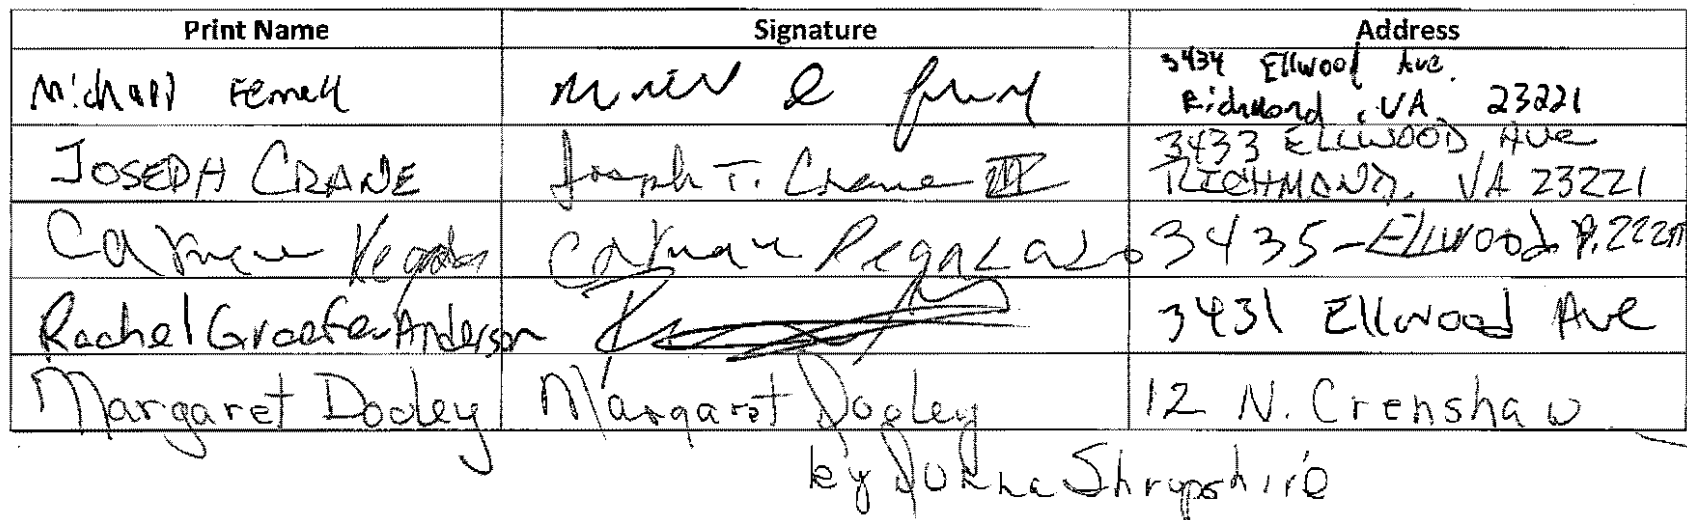 Print Name Signature Address
Michael Fennell 3434 Ellwood Ave.
Richmond, VA 23221
JOSEPH CRANE Joseph T. Crane III 3433 ELLWOOD AVE
RICHMOND, VA 23221
Carmen Pegalajo 3435-Ellwood
Rachel Graefe-Anderson 3431 Ellwood Ave
Margaret Dooley Margaret Dooley 12 N. Crenshaw
by Donna Shropshire